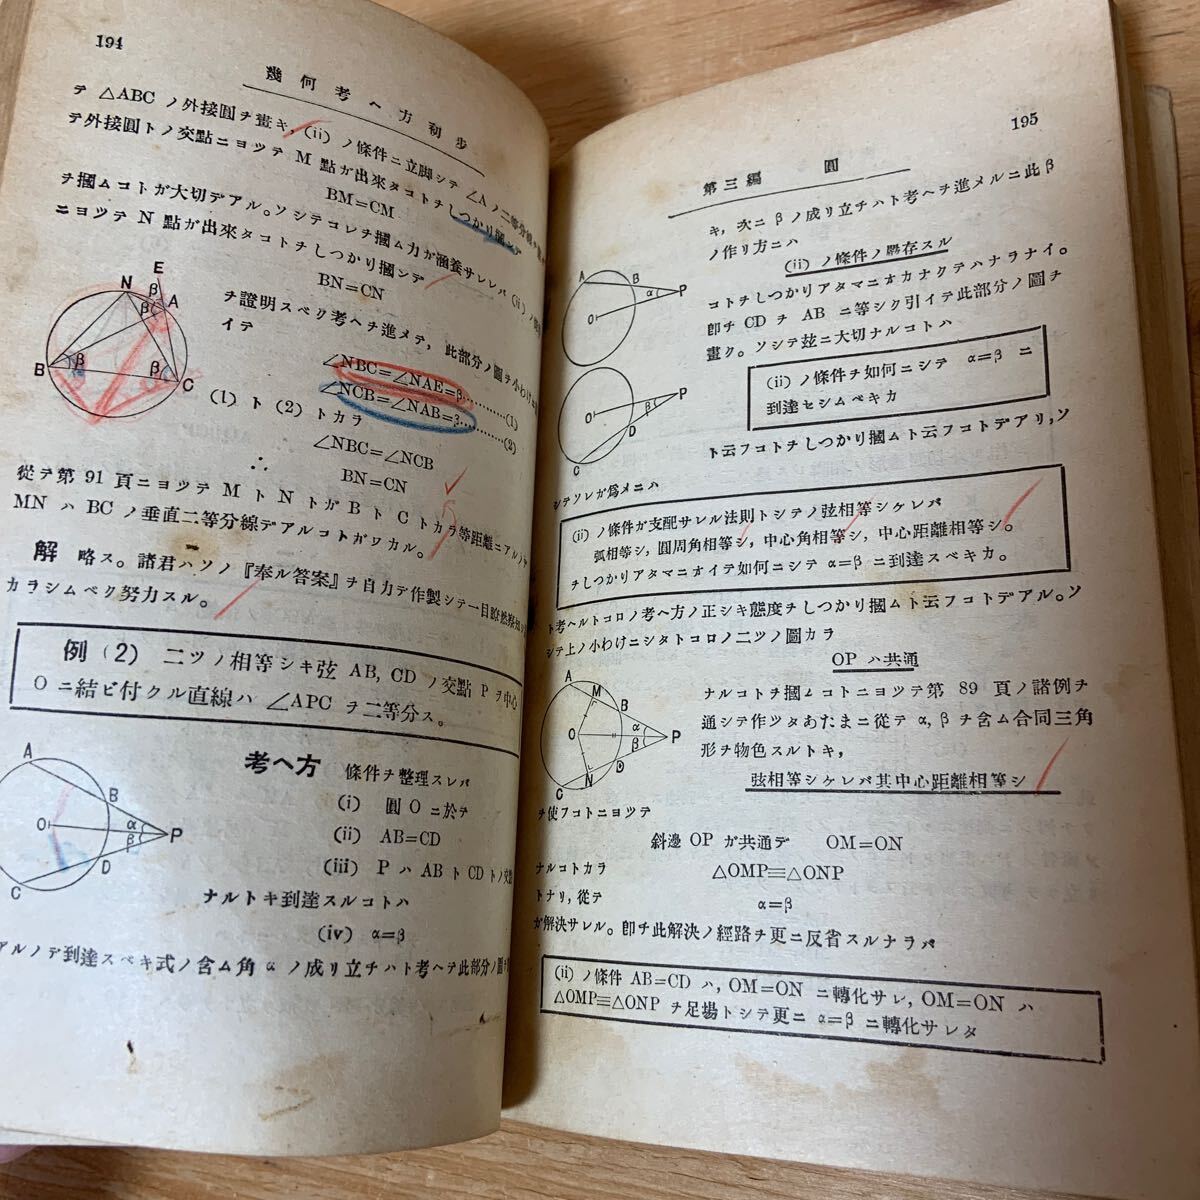 194
幾何考へ方初歩
テ △ABC ノ外接圓ヲ畫キ, (ii) ノ條件ニ立脚シテ ∠A ノ二等分線ヲ
テ外接圓トノ交點ニヨツテ M 點ガ出來タコトヲしつかり摑ンデ
BM=CM
ヲ摑ムコトガ大切デアル。ソシテコレヲ摑ム力ガ涵養サレレバ (ii)
ニヨツテ N 點ガ出來タコトヲしつかり摑ンデ
BN=CN
ヲ證明スベク考ヘヲ進メテ, 此部分ノ圖ヲ小わけニ
イテ
∠NBC=∠NAE=β…………(1)
∠NCB=∠NAB=β…………(2)
(1) ト (2) トカラ
∠NBC=∠NCB
∴
BN=CN
從テ第 91 頁ニヨツテ M ト N トガ B ト C トカラ等距離ニアルノデ
MN ハ BC ノ垂直二等分線デアルコトガワカル。
解 略ス。諸君ハソノ『奉ル答案』ヲ自力デ作製シテ一目瞭然
カラシムベク努力スル。
例 (2) 二ツノ相等シキ弦 AB, CD ノ交點 P ヲ中心
O ニ結ビ付クル直線ハ ∠APC ヲ二等分ス。
考へ方 條件ヲ整理スレバ
(i) 圓 O ニ於テ
(ii) AB=CD
(iii) P ハ AB ト CD トノ交點
ナルトキ到達スルコトハ
(iv) α=β
アルノデ到達スベキ式ノ含ム角 α ノ成リ立チハト考ヘテ此部分ノ圖ヲ
N
E
A
B
C
β
β
β
β
A
B
O
α
β
P
D
C
195
第三編 圓
キ, 次ニ β ノ成リ立チハト考ヘヲ進メルニ此 β
ノ作リ方ニハ
(ii) ノ條件ノ嚴存スル
コトヲしつかりアタマニオカナクテハナラナイ。
卽チ CD ヲ AB ニ等シク引イテ此部分ノ圖ヲ
畫ク。ソシテ玆ニ大切ナルコトハ
(ii) ノ條件ヲ如何ニシテ α=β ニ
到達セシムベキカ
ト云フコトヲしつかり摑ムト云フコトデアリ,ソ
シテソレガ爲メニハ
(ii) ノ條件ガ支配サレル法則トシテノ弦相等シケレバ
弧相等シ, 圓周角相等シ, 中心角相等シ, 中心距離相等シ。
ヲしつかりアタマニオイテ如何ニシテ α=β ニ到達スベキカ。
ト考ヘルトコロノ考ヘ方ノ正シキ態度ヲしつかり摑ムト云フコトデアル。ソ
シテ上ノ小わけニシタトコロノ二ツノ圖カラ
OP ハ共通
ナルコトヲ摑ムコトニヨツテ第 89 頁ノ諸例ヲ
通シテ作ツタあたまニ從テ α, β ヲ含ム合同三角
形ヲ物色スルトキ,
弦相等シケレバ其中心距離相等シ
ヲ使フコトニヨツテ
斜邊 OP ガ共通デ OM=ON
ナルコトカラ △OMP≡△ONP
トナリ, 從テ α=β
ガ解決サレル。卽チ此解決ノ經路ヲ更ニ反省スルナラバ
(ii) ノ條件 AB=CD ハ, OM=ON ニ轉化サレ, OM=ON ハ
△OMP≡△ONP ヲ足場トシテ更ニ α=β ニ轉化サレタ
A
B
α
P
O
O
β
P
D
C
A
M
B
α
O
β
P
N
D
C